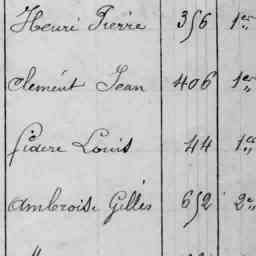 Henri Pierre 356 1er
Clemént Jean 406 1er
Fidere Louis 44 1er
Ambroise Gilles 652 2e
"